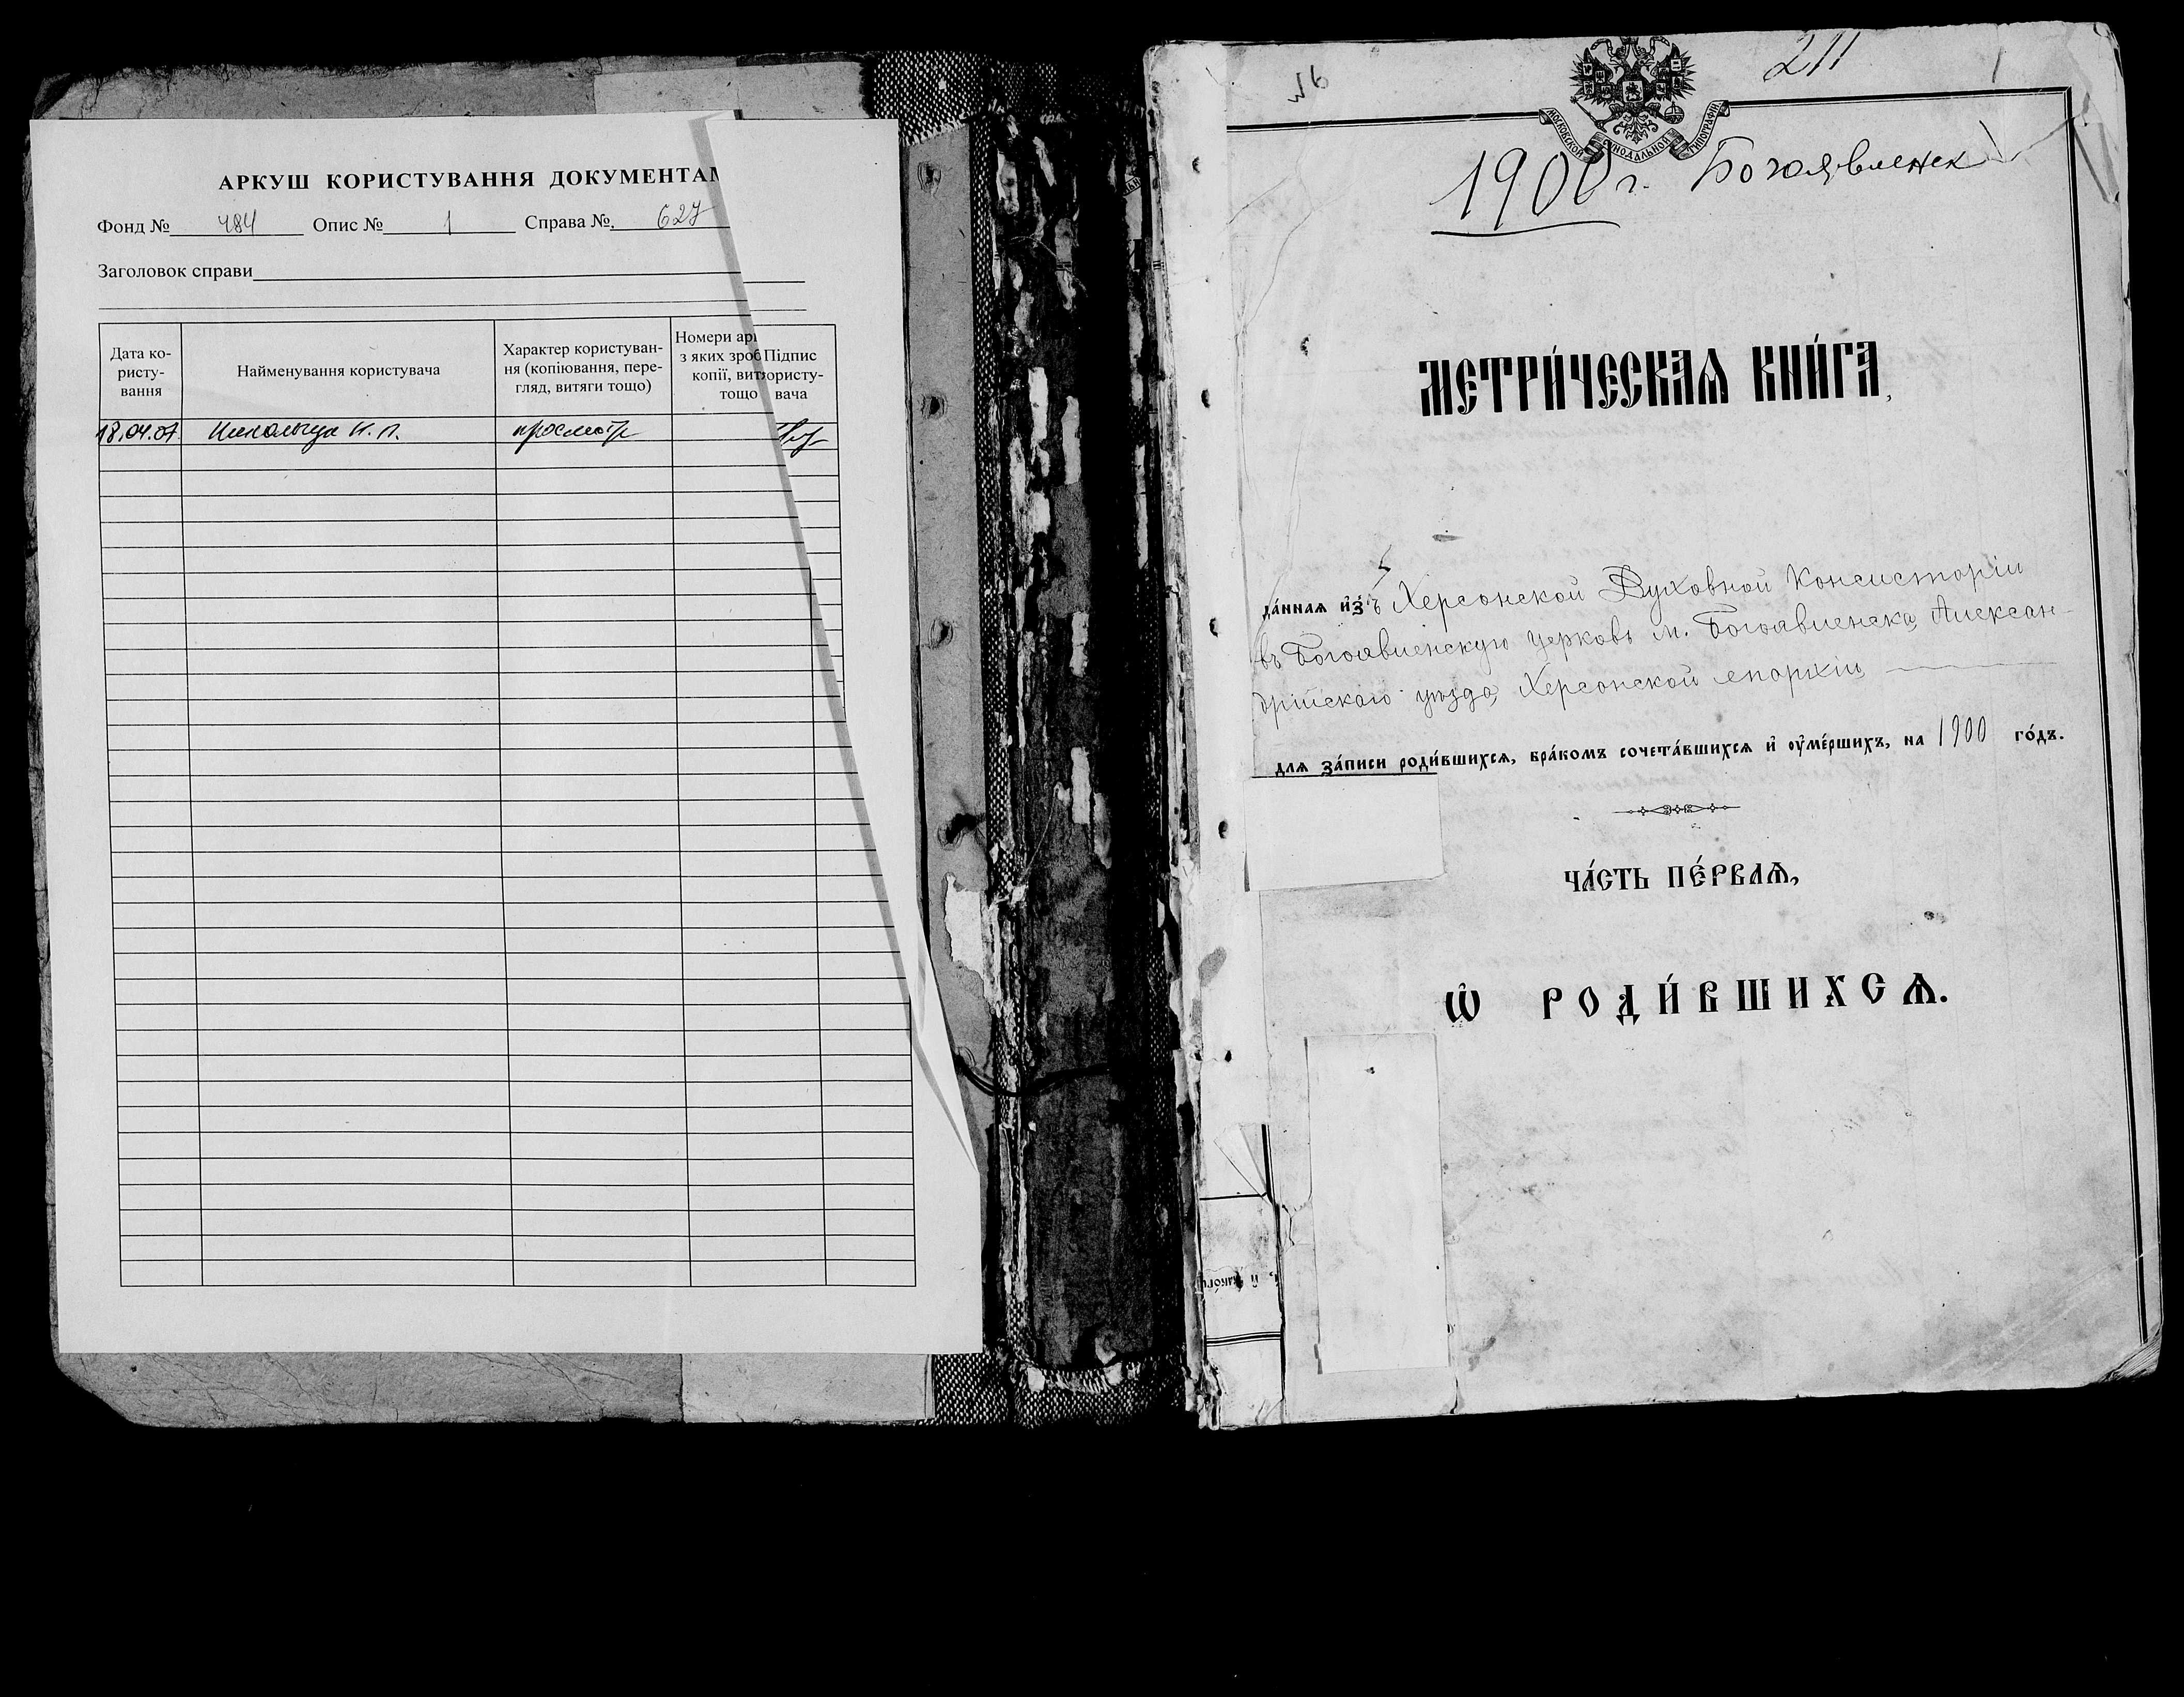 АРКУШ КОРИСТУВАННЯ ДОКУМЕНТАМ
Фонд № 484 Опис № 1 Справа №. 627
Заголовок справи
Дата ко-
ристу-
вання
Найменування користувача
Характер користуван-
ня (копіювання, пере-
гляд, витяги тощо)
Номери ар
з яких зроб
копії, вит
тощо
Підпис
ористу-
вача
18.04.07 Н. П. просмотр
№6
211
1
МОСКОВСКОЙ СИНОДАЛЬНОЙ ТИПОГРАФІИ
1900 г. Богоявленск
МЕТРИ́ЧЕСКАѦ КНИ́ГА,
да́ннаѧ и҆з̾ Херсонской Духовной Консисторіи
въ Богоявленскую церковь м. Богоявленска, Алексан-
дрійскаго уѣзда, Херсонской епархіи
длѧ за́писи роди́вшихсѧ, бра́комъ сочета́вшихсѧ и҆ ᲂу҆ме́ршихъ, на 1900 го́дъ.
ЧА́СТЬ ПЕ́РВАѦ,
Ѽ РОДИ́ВШИХСѦ.